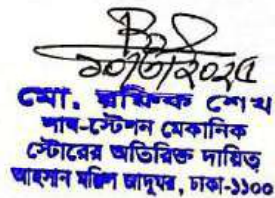 মো. রফিক শেখ
সাব-স্টেশন মেকানিক
স্টোরের অতিরিক্ত দায়িত্ব
আহসান মঞ্জিল জাদুঘর, ঢাকা-১১০০